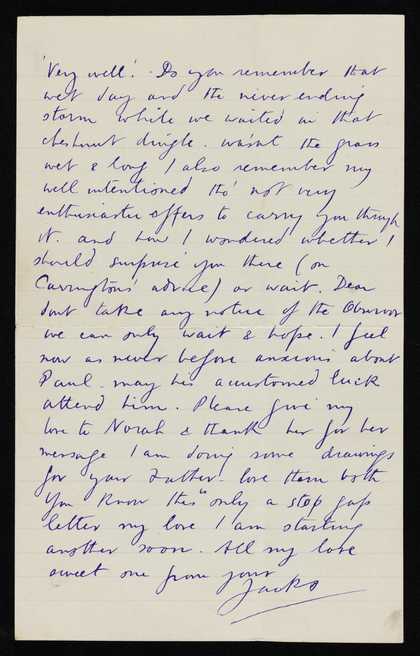 'Very well'. Do you remember that
wet day and the never ending
storm while we waited in that
chestnut dingle. wasnt the grass
wet & long, I also remember my
well intentioned tho' not very
enthusiastic offers to carry you through
it. and how I wondered whether I
should surprise you there (on
Carrington's advice) or wait. Dear
dont take any notice of the Observer
we can only wait & hope. I feel
now as never before anxious about
Paul. may his accustomed luck
attend him. Please give my
love to Norah & thank her for her
message I am doing some drawings
for your Father. love them both
You know this" only a stop gap
letter my love I am starting
another soon. All my love
sweet one from your
Jacko